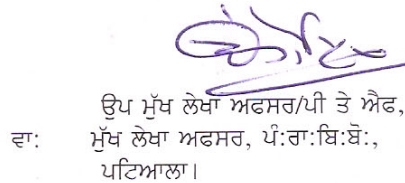 ਉਪ ਮੁੱਖ ਲੇਖਾ ਅਫਸਰ/ਪੀ ਤੇ ਐਫ,
ਵਾ: ਮੁੱਖ ਲੇਖਾ ਅਫਸਰ, ਪੰ:ਰਾ:ਬਿ:ਬੋ:,
ਪਟਿਆਲਾ।